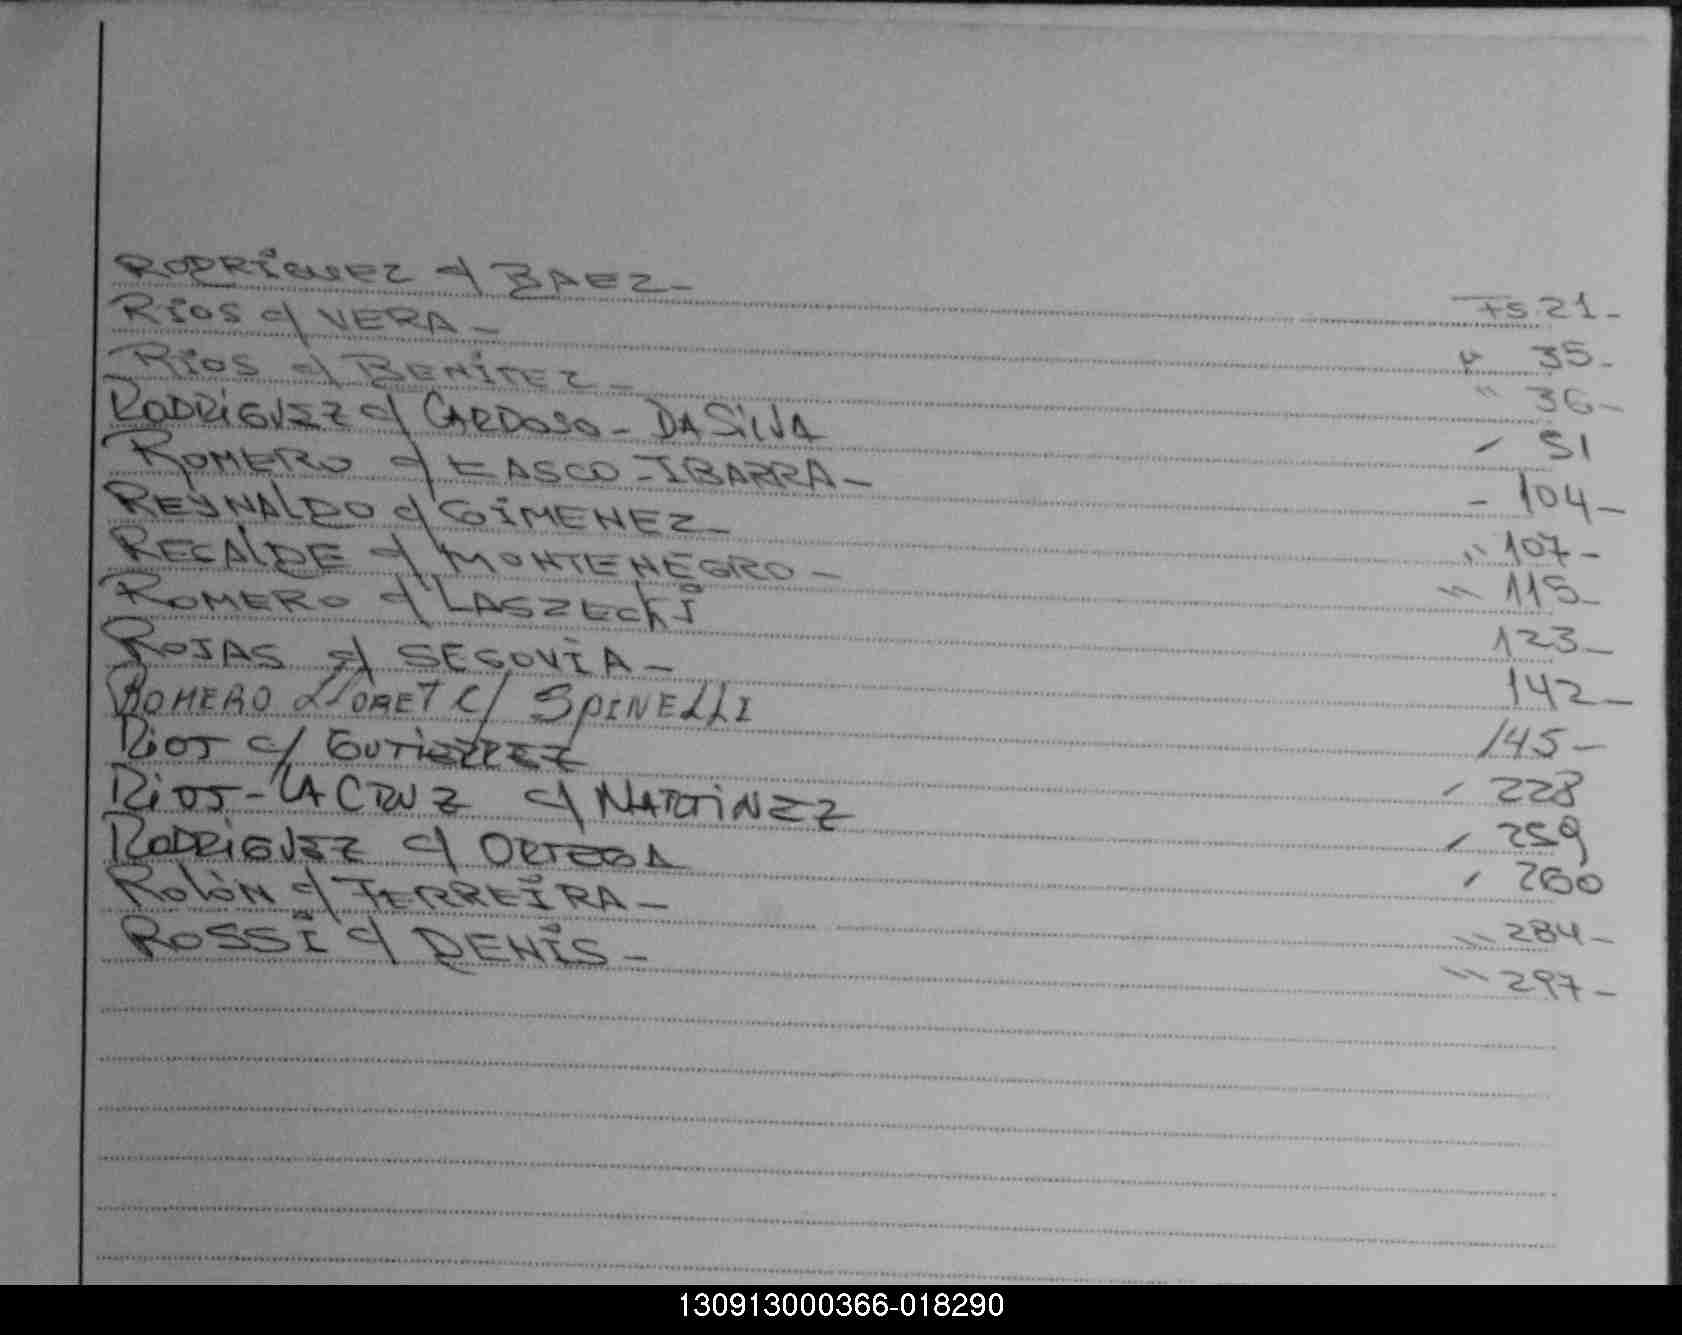 RODRÍGUEZ c/ BAEZ - Fs. 21 -
RÍOS c/ VERA - " 35 -
RÍOS c/ BENÍTEZ - " 36 -
RODRIGUEZ c/ CARDOSO - DA SILVA " 51
ROMERO c/ LASCO - IBARRA - - 104 -
REYNALDO c/ GIMENEZ - " 107 -
RECALDE c/ MONTENEGRO - " 115 -
ROMERO c/ LASZECKI 123 -
ROJAS c/ SEGOVIA - 142 -
ROMERO LLORET C/ SPINELLI 145 -
RIOS c/ GUTIERREZ " 228
RIOS - LA CRUZ c/ MARTINEZ " 259
RODRIGUEZ c/ ORTEGA " 260
ROLÓN c/ FERREIRA - " 284 -
ROSSI c/ DENIS - " 297 -
130913000366-018290